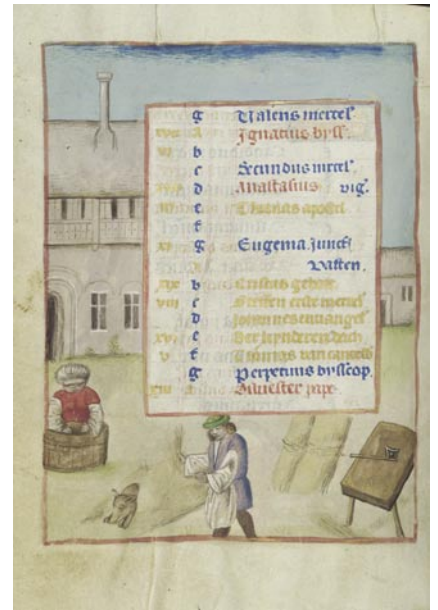 g Valens mertel'
A Ignatius byss'
b
c Secundus mrtel'
d Anastasius vig'
e Thomas apostel
f
g Eugenia junck'
Vasten.
b Cristus gebort
viii c Steffen erste mertel'
d Johannes ewangel'
xvi e Der kynderen dach
v f Thomas van
g Perpetuus bysscop.
xiii A Silvester pape